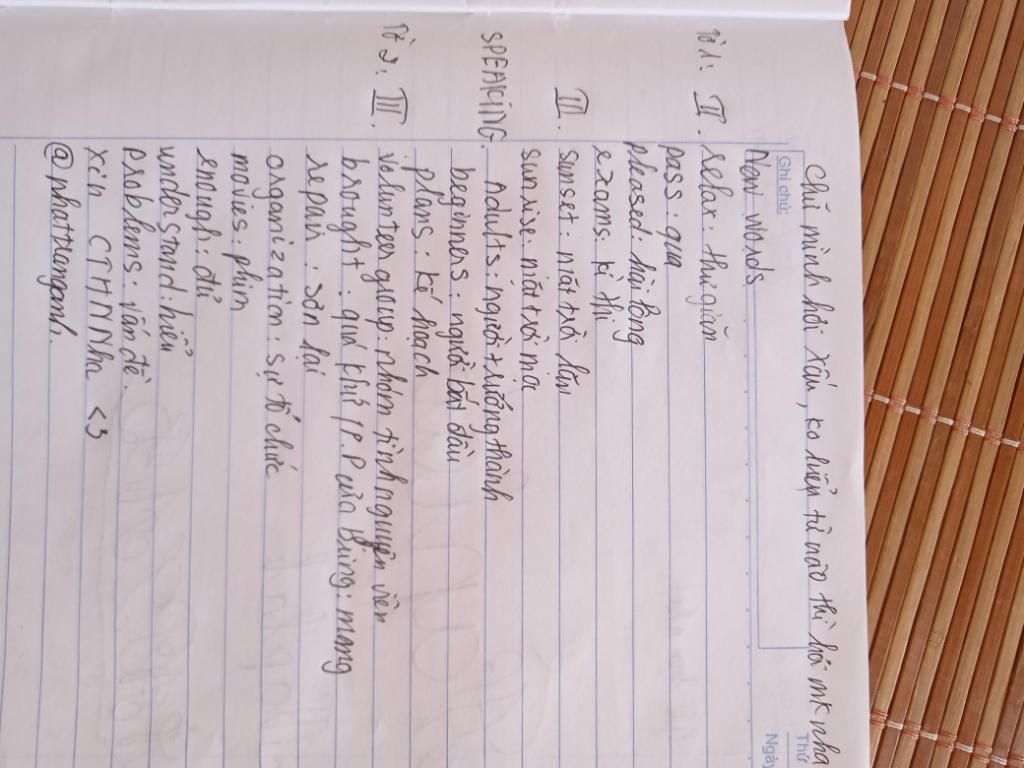 Chữ mình hơi xấu, ko hiểu từ nào thì hỏi mk nha
Ghi chú:
Thứ
Ngày
New words
Tờ 1: II. relax: thư giãn
pass: qua
pleased: hài lòng
exams: kì thi
III. sunset: mặt trời lặn
sunrise: mặt trời mọc
SPEAKING. Adults: người trưởng thành
beginners: người bắt đầu
plans: kế hoạch
Tờ 2: III. volunteer group: nhóm tình nguyện viên
brought: quá khứ, P.P của bring: mang
repair: sửa lại
organization: sự tổ chức
movies: phim
enough: đủ
understand: hiểu
problems: vấn đề
xin CTHNNha <3
@phattranganh.